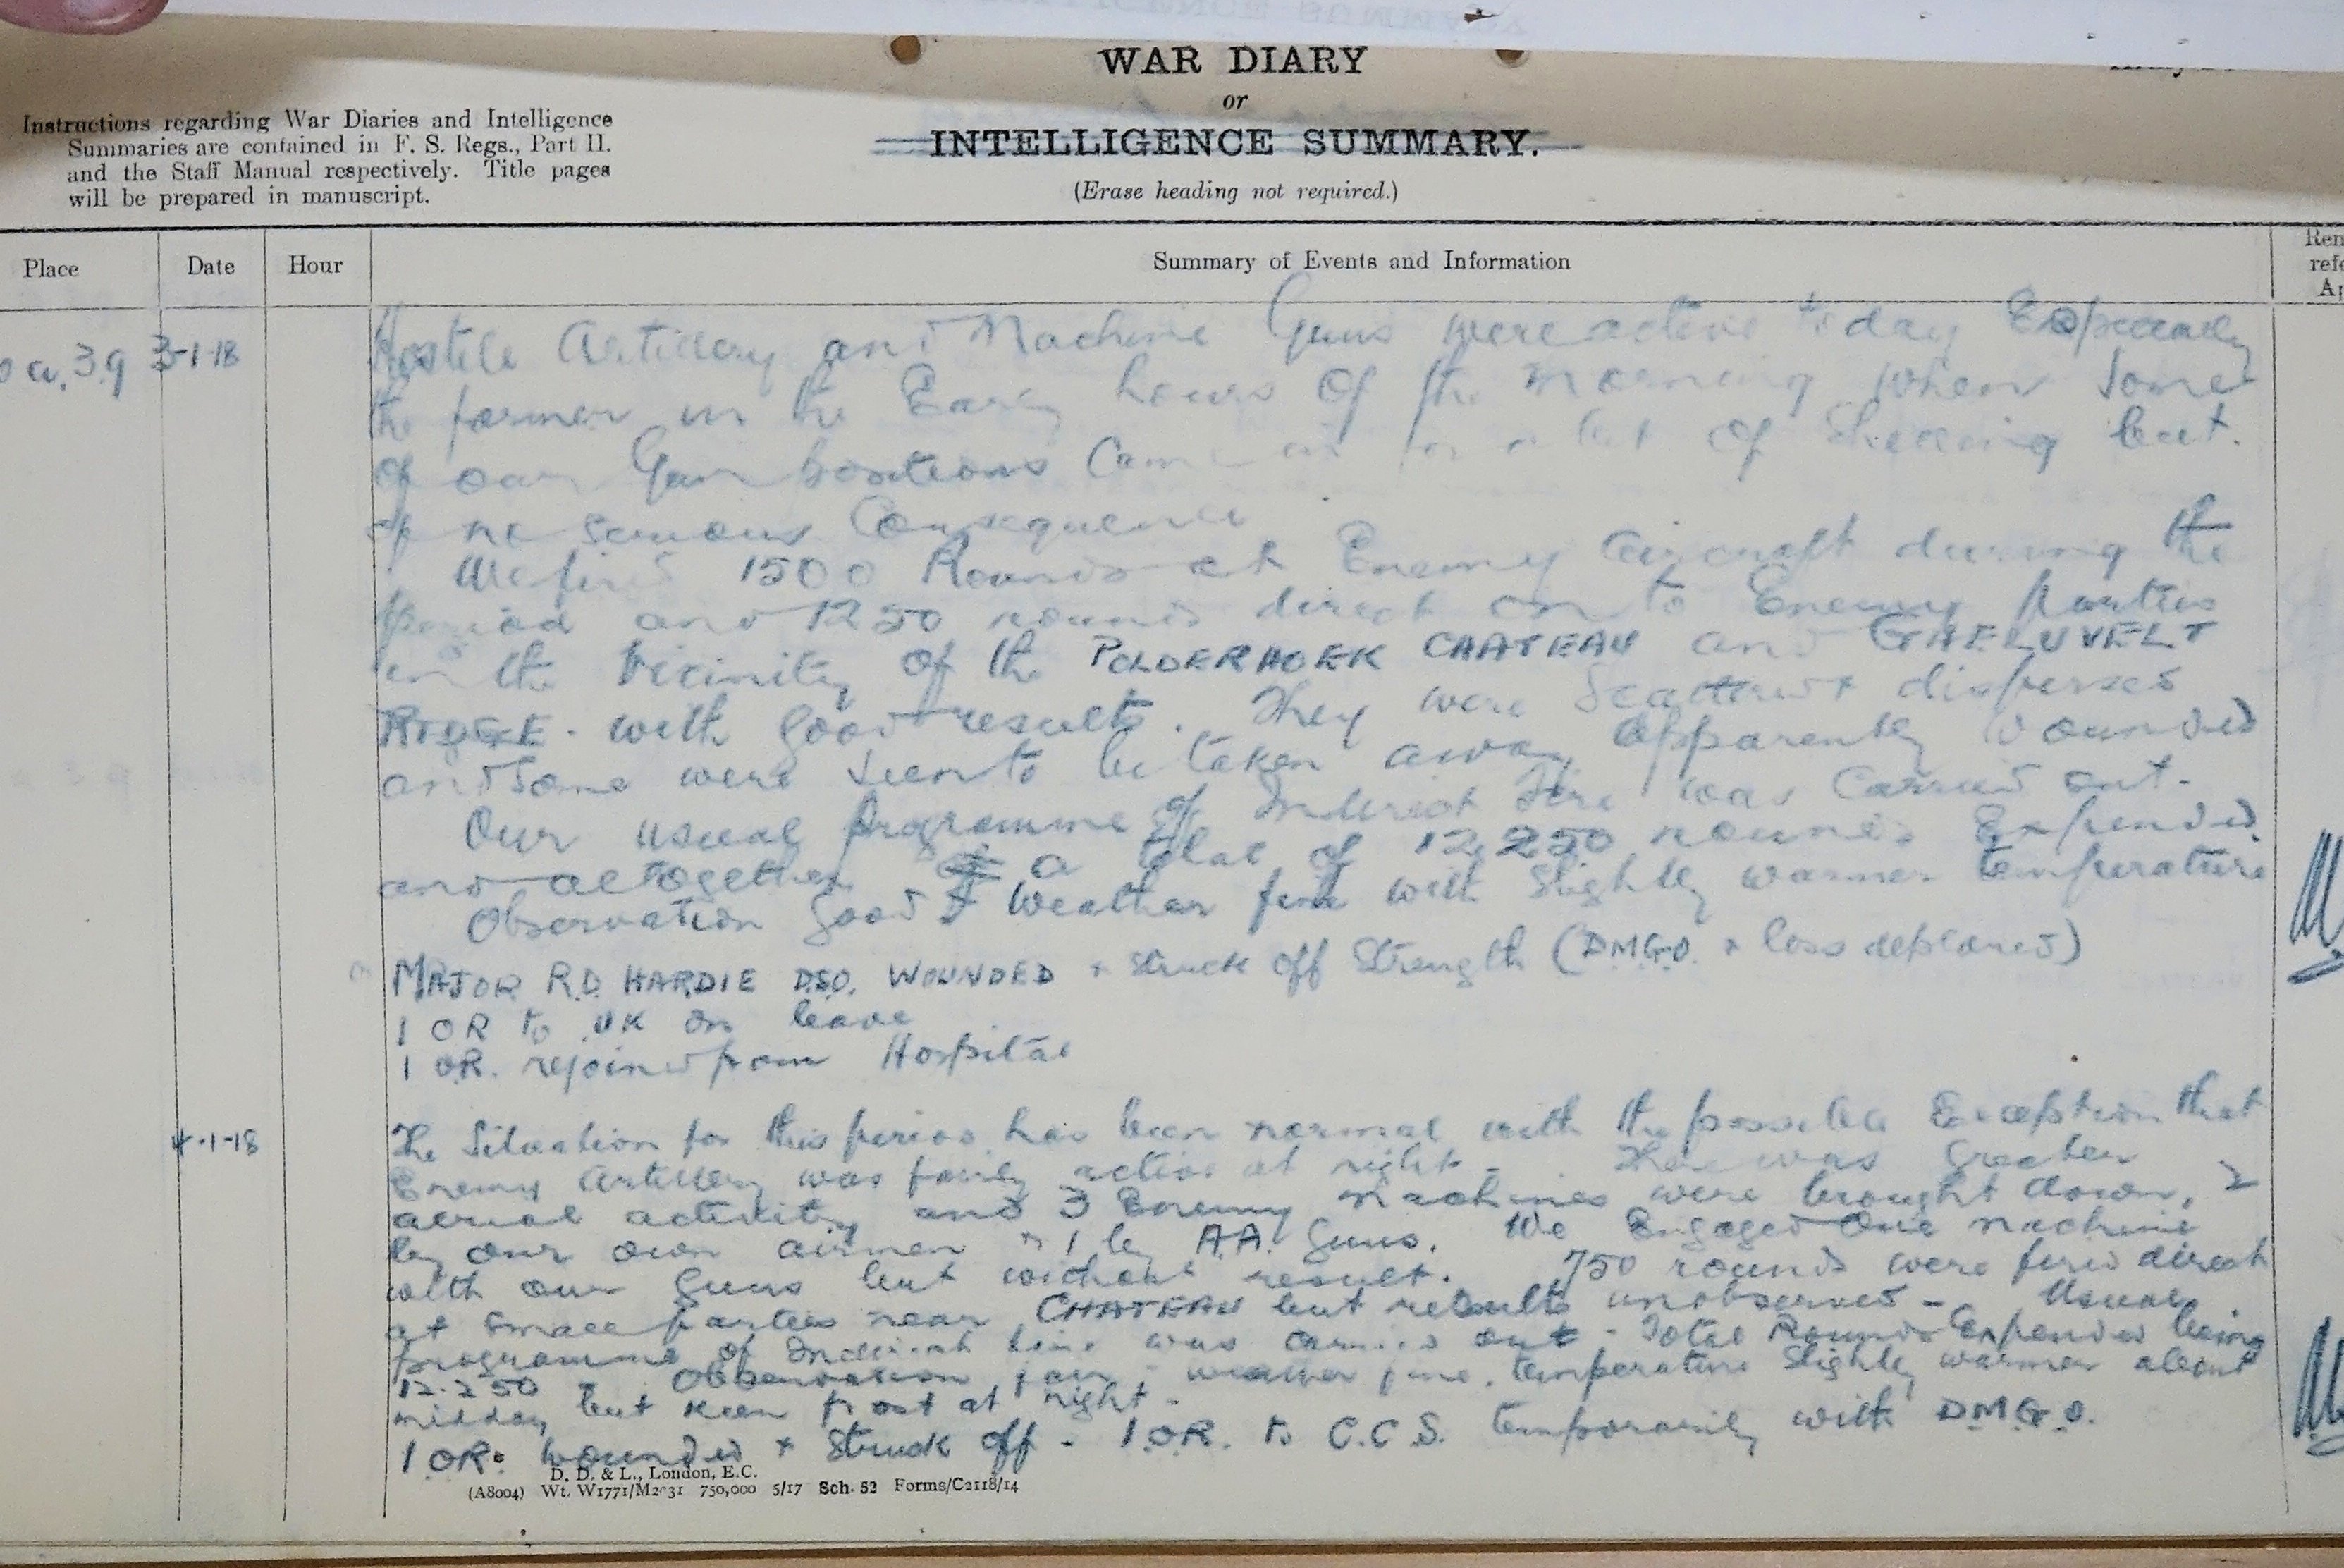 WAR DIARY
or
INTELLIGENCE SUMMARY.
(Erase heading not required.)
Instructions regarding War Diaries and Intelligence
Summaries are contained in F. S. Regs., Part II.
and the Staff Manual respectively. Title pages
will be prepared in manuscript.
Place Date Hour Summary of Events and Information
3-1-18
Hostile Artillery and Machine Guns were active to day Especially
the former in the Early hours of the morning when some
of our Gun positions Came in for a bit of Shelling but
of no serious Consequence
We fired 1500 Rounds at Enemy Aircraft during the
period and 1250 rounds direct on to Enemy parties
in the Vicinity of the POLDERHOEK CHATEAU and GHELUVELT
RIDGE. with good results. They were Scattered & dispersed
and some were seen to be taken away apparently wounded
Our usual programme of Indirect Fire was Carried out.
and altogether a total of 12,250 rounds Expended.
Observation good & Weather fine with Slightly warmer temperature
MAJOR R.D. HARDIE D.S.O. WOUNDED & Struck off Strength (D.M.G.O. & loss deplored)
1 OR to UK on leave
1 OR. rejoined from Hospital
4-1-18
The Situation for this period has been normal with the possible Exception that
Enemy Artillery was fairly active at night - There was Greater
aerial activity and 3 Enemy machines were brought down, 2
by our own airmen & 1 by A.A. Guns. We Engaged One machine
with our Guns but without result. 750 rounds were fired direct
at small parties near CHATEAU but results unobserved - Usual
programme of Indirect fire was carried out - Total Rounds Expended being
12.250 - Observation fair - weather fine. temperature Slightly warmer about
midday but keen frost at night -
1 OR. wounded & Struck off - 1.OR. to C.C.S. temporarily with D.M.G.O.
D. D. & L., London, E.C.
(A8004) Wt. 750,000 5/17 Sch. 52 Forms/C2118/14